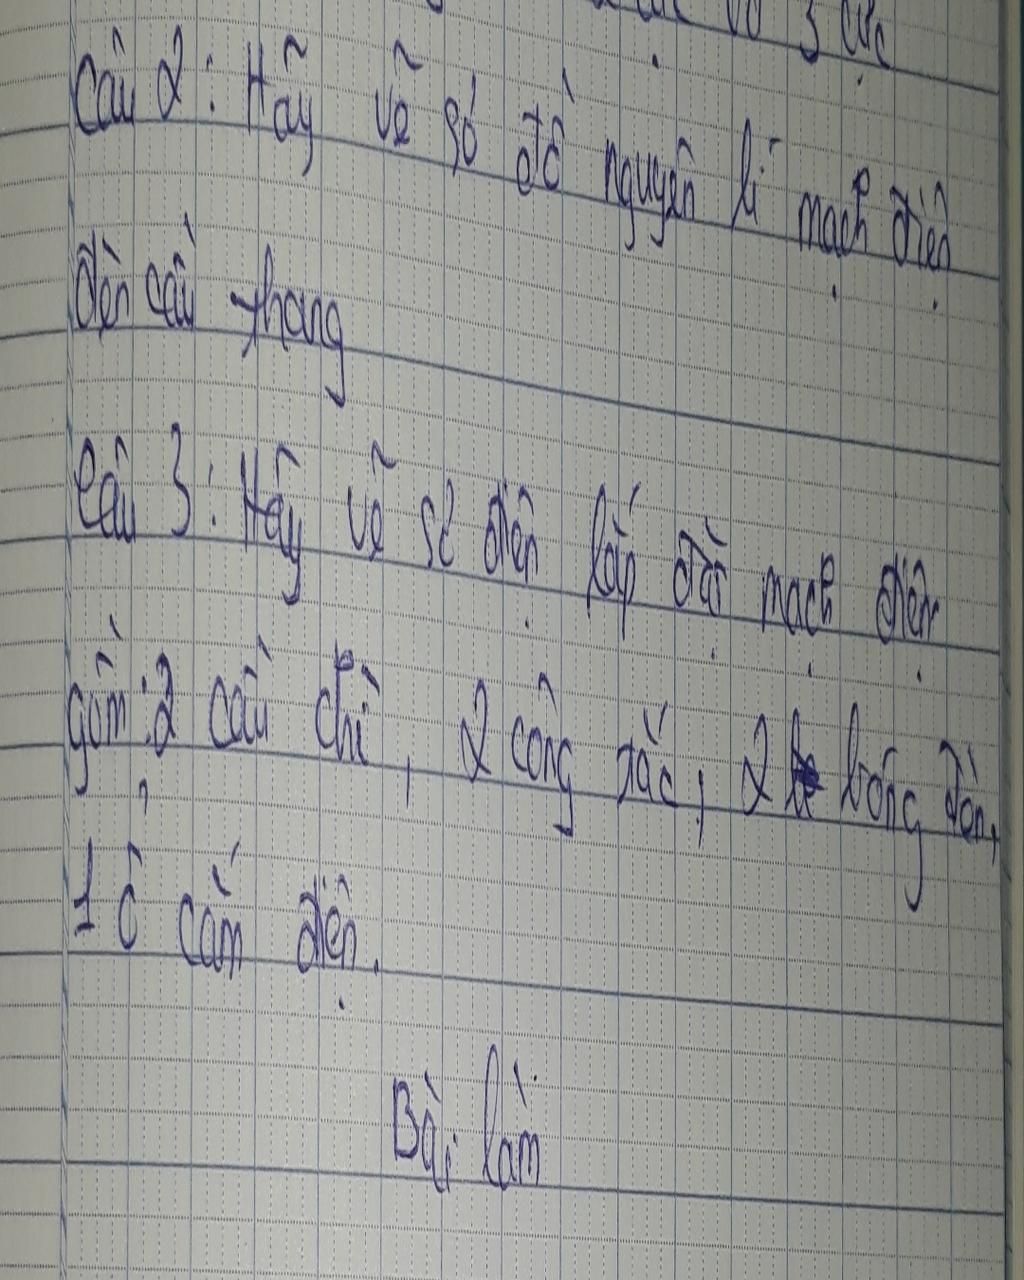 3 cực
Câu 2: Hãy vẽ sơ đồ nguyên lí mạch điện
đèn cầu thang
Câu 3: Hãy vẽ sơ điện lắp đặt mạch điện
gồm: 2 cầu chì, 2 công tắc, 2 bóng đèn,
1 ổ cắm điện.
Bài làm